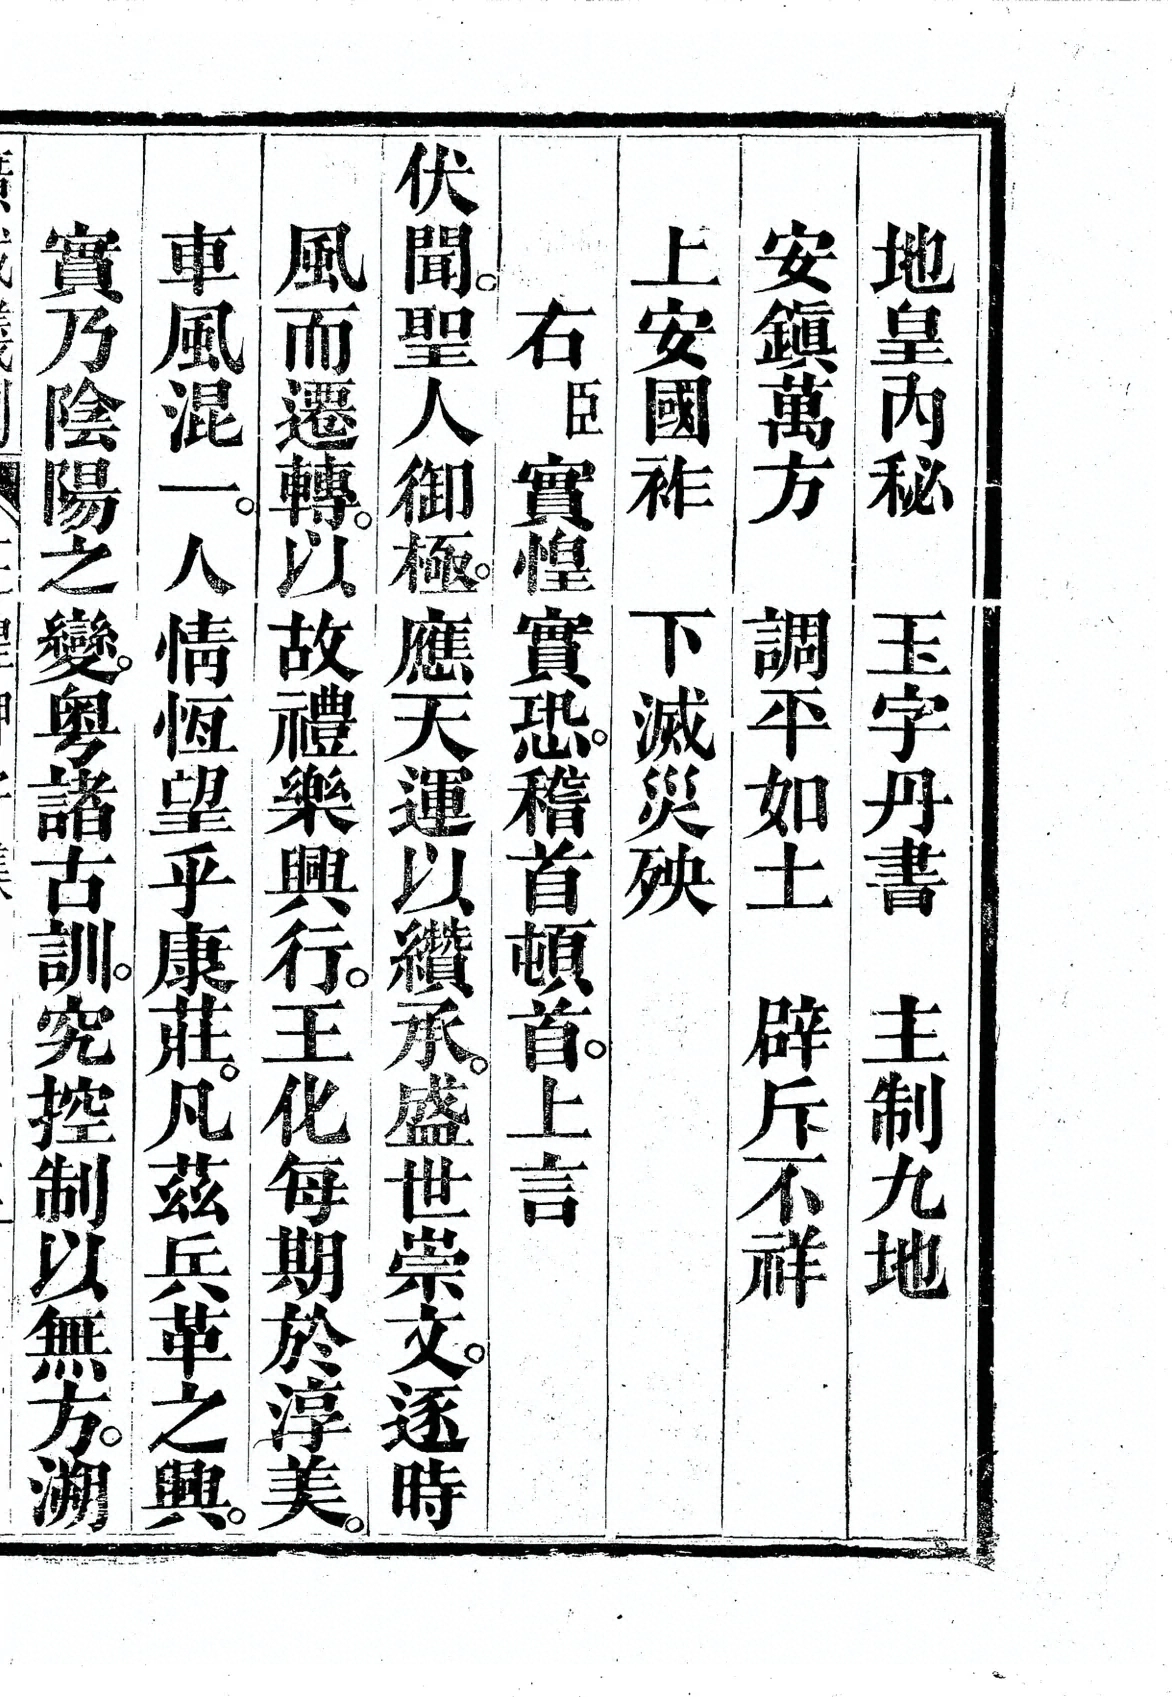 地皇內秘　玉字丹書　主制九地
安鎭萬方　調平如土　辟斥不祥
上安國祚　下滅災殃
右臣實惶實恐。稽首頓首。上言
伏聞。聖人御極。應天運以纘承。盛世崇文。逐時
風而遷轉。以故禮樂興行。王化每期於淳美。
車風混一。人情恆望乎康莊。凡茲兵革之興。
實乃陰陽之變。粤諸古訓。究控制以無方。溯